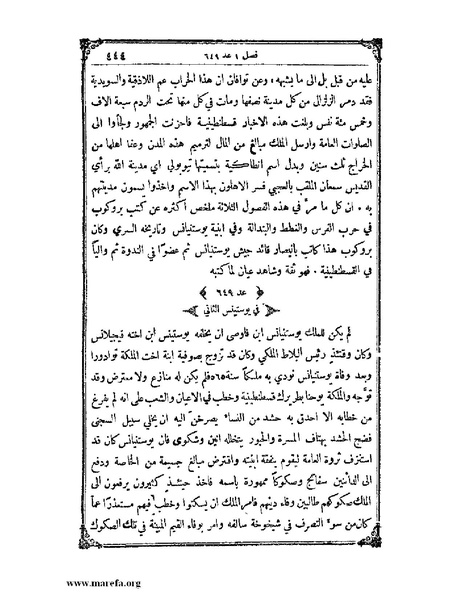 فصل ١ عد ٦٤٩ ٤٤٤
عليه من قبل بل الى ما يشبهه ، وعن توافان ان هذا الخراب عم اللاذقية والسويدية
فقد دمر الزلزال من كل مدينة نصفها ومات في كل منها تحت الردم سبعة الاف
وخمس مئة نفس وبلغت هذه الاخبار قسطنطينية فاحزنت الجمهور ولجأوا الى
الصلوات العامة وارسل الملك مبالغ من المال لترميم هذه المدن وعفا اهلها من
الخراج ثلث سنين وبدل اسم انطاكية بتسميتها تيوبولي اي مدينة الله برأي
القديس سمعان الملقب بالعجبي فسر الاهلون بهذا الاسم واخذوا يسمون مدينتهم
به . ان كل ما مرّ في هذه الفصول الثلاثة ملخص اكثره عن كتب بروكوب
في حرب الفرس والغطط والبندالة وفي ابنية يوستنيانس وتاريخه السري وكان
بروكوب هذا كاتب باليسار قائد جيش يوستنيانس ثم عضوًا في الندوة ثم واليًا
في القسطنطينية . فهو ثقة وشاهد عيان لما كتبه
﴿ عد ٦٤٩ ﴾
في يوستينس الثاني
لم يكن للملك يوستنيانس ابن فاوصى ان يخلفه يوستينس ابن اخته فيجيلانس
وكان وقتئذٍ رئيس البلاط الملكي وكان قد تزوج بصوفية ابنة اخت الملكة توادورا
وبعد وفاة يوستنيانس نودي به ملكًا سنة ٥٦٥ فلم يكن له منازع ولا معترض وقد
توّجه والملكة يوحنا بطريرك قسطنطينية وخطب في الاعيان والشعب على انه لم يفرغ
من خطابه الا احدق به حشد من النساء يصرخنّ اليه ان يخلي سبيل السجنى
فضج الحشد بهتاف المسرة والحبور يتخلله انين وشكوى فان يوستنيانس كان قد
استنزف ثروة العامة ليقوم بنفقة ابنيته واقترض مبالغ جسيمة من الخاصة ودفع
الى الدائنين سفاتج وصكوكًا ممهورة باسمه فاخذ حينئذٍ كثيرون يرفعون الى
الملك صكوكهم طالبين وفاء دينهم فامر الملك ان يسكتوا وخطب فيهم مستعذرًا عما
كان من سوء التصرف في شيخوخة سالفه وامر بوفاء القيم المبينة في تلك الصكوك
www.marefa.org